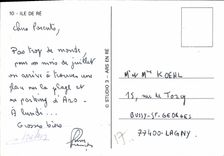 10 - ILE DE RÉ
Chers Parents,
Pas trop de monde
pour ce mois de juillet
on arrive à trouver une
place sur la plage et
au parking d'A20.
A lundi...
Grosses bises
© STUDIO 2 - ARS EN RÉ
Mr et Mme KOEHL
15, rue de Torcy
BUSSY-ST-GEORGES
77400-LAGNY
17